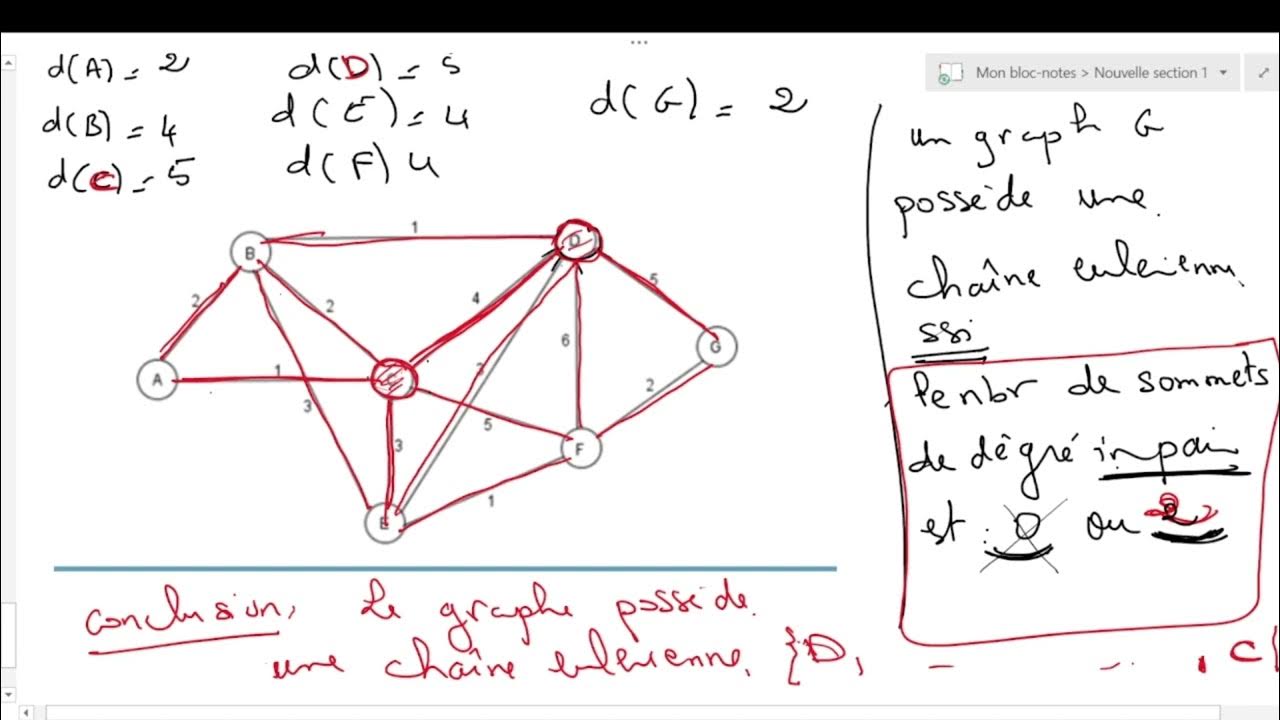 Mon bloc-notes > Nouvelle section 1
d(A) = 2
d(B) = 4
d(C) = 5
d(D) = 5
d(E) = 4
d(F) 4
d(G) = 2
un graph G
possède une
chaîne eulerienne
ssi
le nbr de sommets
de dêgré impair
est : 0 ou 2
1
B
D
2
2
4
5
A
1
C
3
6
G
3
5
2
3
F
E
1
conclusion, le graphe possède
une chaîne eulerienne, {D, - - , C